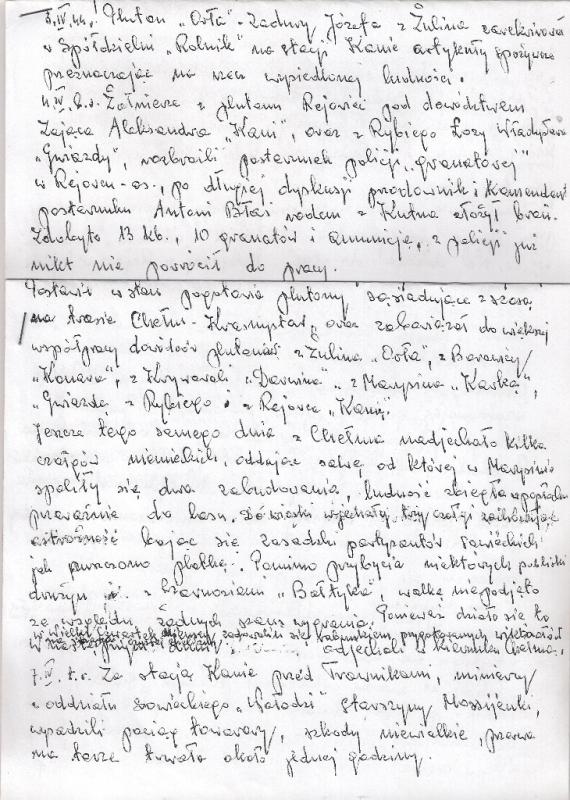 3.IV.44. Pluton "Orła" - Zadury Józefa z Żulina zarekwirował
w Spółdzielni "Rolnik" na stacji Kanie artykuły spożywcze
przeznaczając na rzecz wypiedlonej ludności.
4.IV. b.r. Żołnierze z plutonu Rejowiec pod dowództwem
Zająca Aleksandra "Kani", oraz z Rybiego Łozy Władysława
"Gwiazdy", rozbroili posterunek policji "granatowej"
w Rejowcu-os., po długiej dyskusji przodownik i Komendant
posterunku Antoni Błaś rodem z Kutna złożył broń.
Zdobyto 13 kb., 10 granatów i amunicję, z policji już
nikt nie powrócił do pracy.
Postawił w stan pogotowia plutony sąsiadujące z szosą
na trasie Chełm - Krasnystaw, oraz zobowiązał do większej
współpracy dowódców plutonów z Żulina "Orła", z Borowicy
"Konara", z Krywowoli "Darwina", z Marysina "Kawkę",
"Gwiazdę z Rybiego i z Rejowca "Kanię".
Jeszcze tego samego dnia z Chełma nadjechało kilka
czołgów niemieckich, oddając salwę od której w Marysinie
spaliły się dwa zabudowania, ludność zbiegła w popłochu
przeważnie do lasu. Do wioski wjechały trzy czołgi zachowując
ostrożność bojąc się zasadzki partyzantów sowieckich
jak puszczono plotkę. Pomimo przybycia niektórych polskich
drużyn z "Bałtyka", walkę nie podjęto
ze względu, żadnych szans wygrania. Ponieważ działo się to
w Wielki Czwartek Niemcy zadowolili się rabunkiem, przygotowanych wiktuałów
odjechali w kierunku Chełma.
7.IV. b.r. Za stacją Kanie przed Trawnikami, minerzy
z oddziału sowieckiego "Wołodzi" starszyny Mossijenki,
wysadzili pociąg towarowy, szkody niewielkie, przerwa
na torze trwała około jednej godziny.